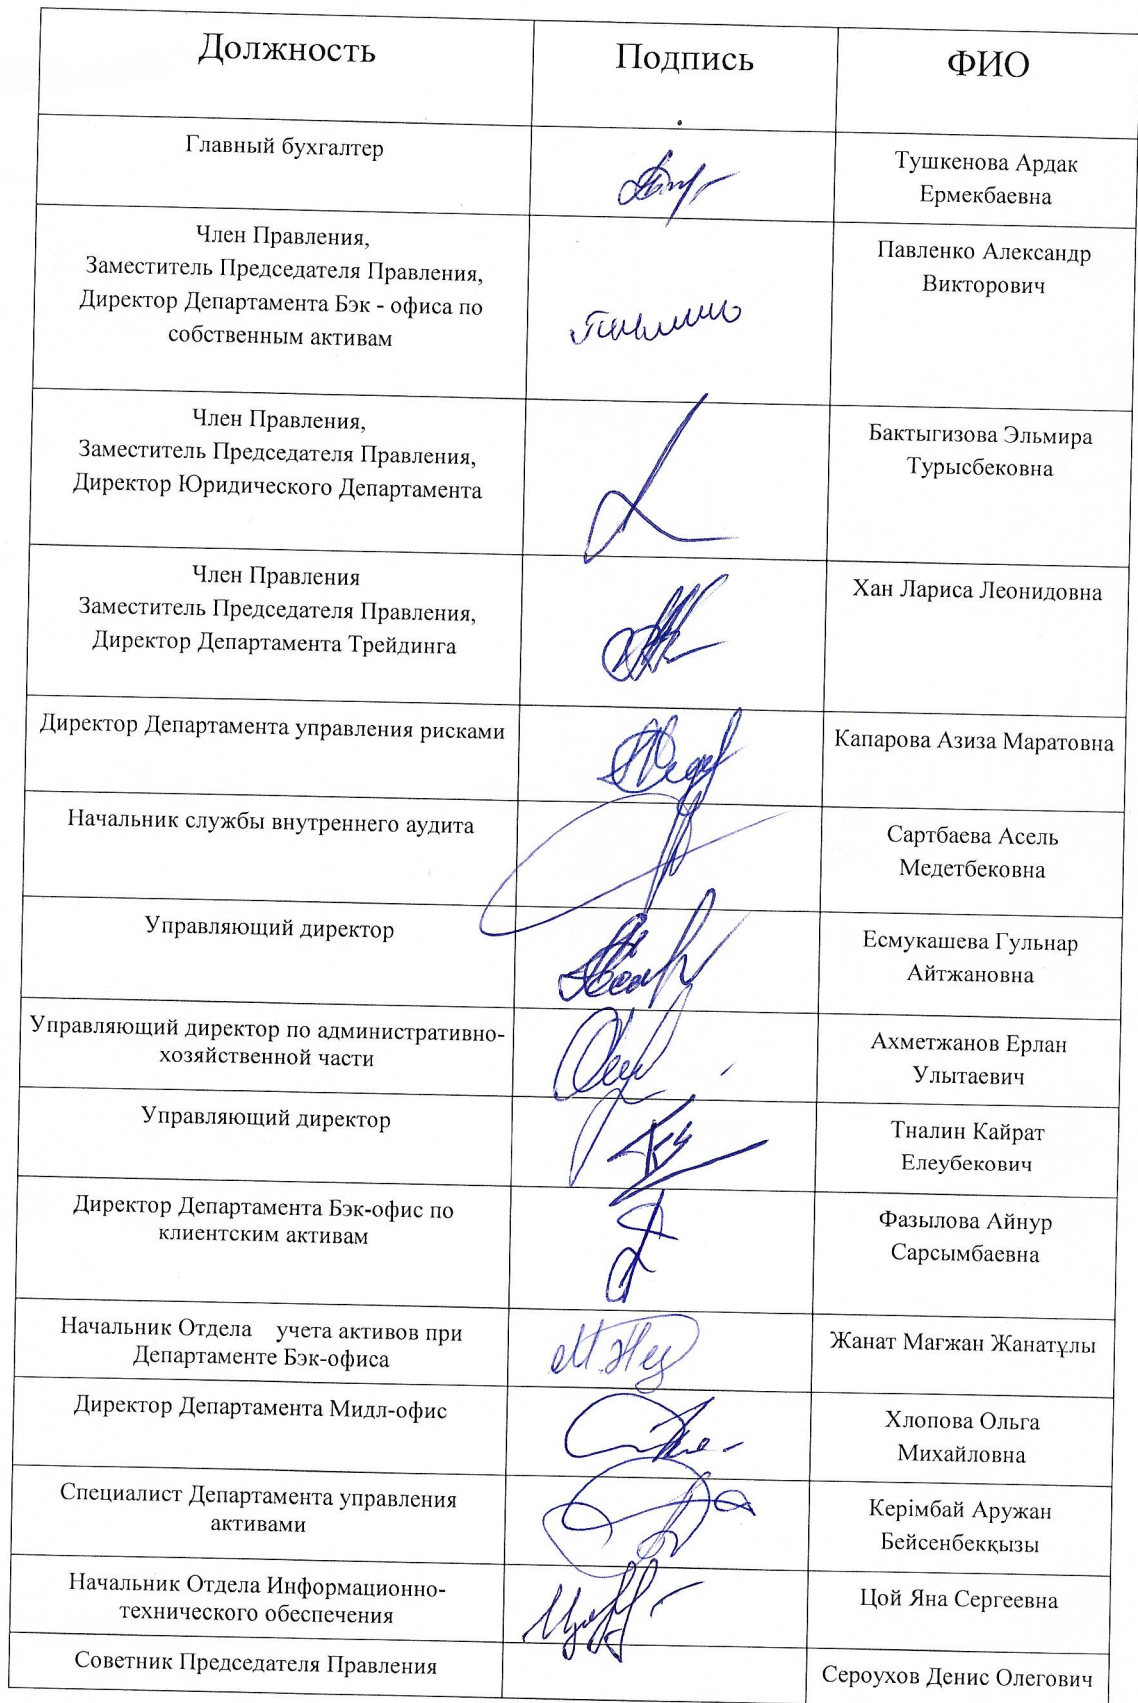 Должность
Подпись
ФИО
Главный бухгалтер
Тушкенова Ардак
Ермекбаевна
Член Правления,
Заместитель Председателя Правления,
Директор Департамента Бэк - офиса по
собственным активам
Павленко Александр
Викторович
Член Правления,
Заместитель Председателя Правления,
Директор Юридического Департамента
Бактыгизова Эльмира
Турысбековна
Член Правления
Заместитель Председателя Правления,
Директор Департамента Трейдинга
Хан Лариса Леонидовна
Директор Департамента управления рисками
Капарова Азиза Маратовна
Начальник службы внутреннего аудита
Сартбаева Асель
Медетбековна
Управляющий директор
Есмукашева Гульнар
Айтжановна
Управляющий директор по административно-
хозяйственной части
Ахметжанов Ерлан
Улытаевич
Управляющий директор
Тналин Кайрат
Елеубекович
Директор Департамента Бэк-офис по
клиентским активам
Фазылова Айнур
Сарсымбаевна
Начальник Отдела учета активов при
Департаменте Бэк-офиса
Жанат Мағжан Жанатұлы
Директор Департамента Мидл-офис
Хлопова Ольга
Михайловна
Специалист Департамента управления
активами
Керімбай Аружан
Бейсенбекқызы
Начальник Отдела Информационно-
технического обеспечения
Цой Яна Сергеевна
Советник Председателя Правления
Сероухов Денис Олегович